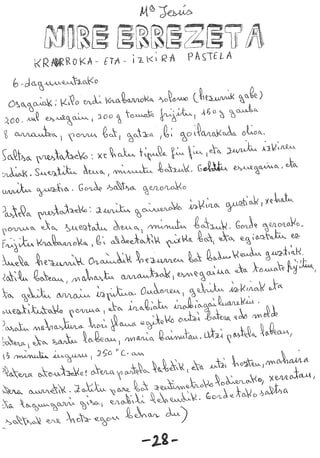 Mª Jesús
NIRE ERREZETA
KRABARROKA-ETA-IZKIRA PASTELA
6-lagunentzako
Osagaiak: Kilo erdi Krabarroka solomo (hezurrik gabe)
200. ml esnegain, 200 g tomate frijitu, 150 g ganba
8 arrautza, porru bat, gatza, bi goilarakada olioa.
Saltsa prestatzeko: xehatu tipula fin fin, eta zuritu izkiren
erdiak. Sueztitu dena, minutu batzuk. Gehitu esnegaina, eta
irritu guztia. Gorde saltsa gerorako
Pastela prestatzeko: zuritu gainerako izkira guztiak, xehatu
porrua eta sueztatu dena, minutu batzuk. Gorde gerorako.
Frijitu Krabarroka, bi aldeetatik pixka bat, eta egiaztatu ez
duela hezurrik. Oraindik hezurren bat badu kendu guztiak.
Katilu batean, nahastu arrautzak, esnegaina eta tomate frijitua,
eta gehitu arrain izpitua. Ondoren, gehitu izkirak eta
sueztitutako porrua, eta irabiatu irabiagailuarekin.
Zuratu nahastura hori flana egiteko ontzi batera edo molde
batera, eta sartu labean, maria bainutan. Utzi pastela labean,
15 minutu inguru, 250°C-an
Platera atontzeko: atera pastela labetik, eta utzi hozten, mahaira
atera aurretik. Zatitu pare bat zentimetroko lodierako, xerratan,
eta lagungarri gisa, erabili lehendik. Gordetako saltsa
(saltsak ere hotz egon behar du)
-28-